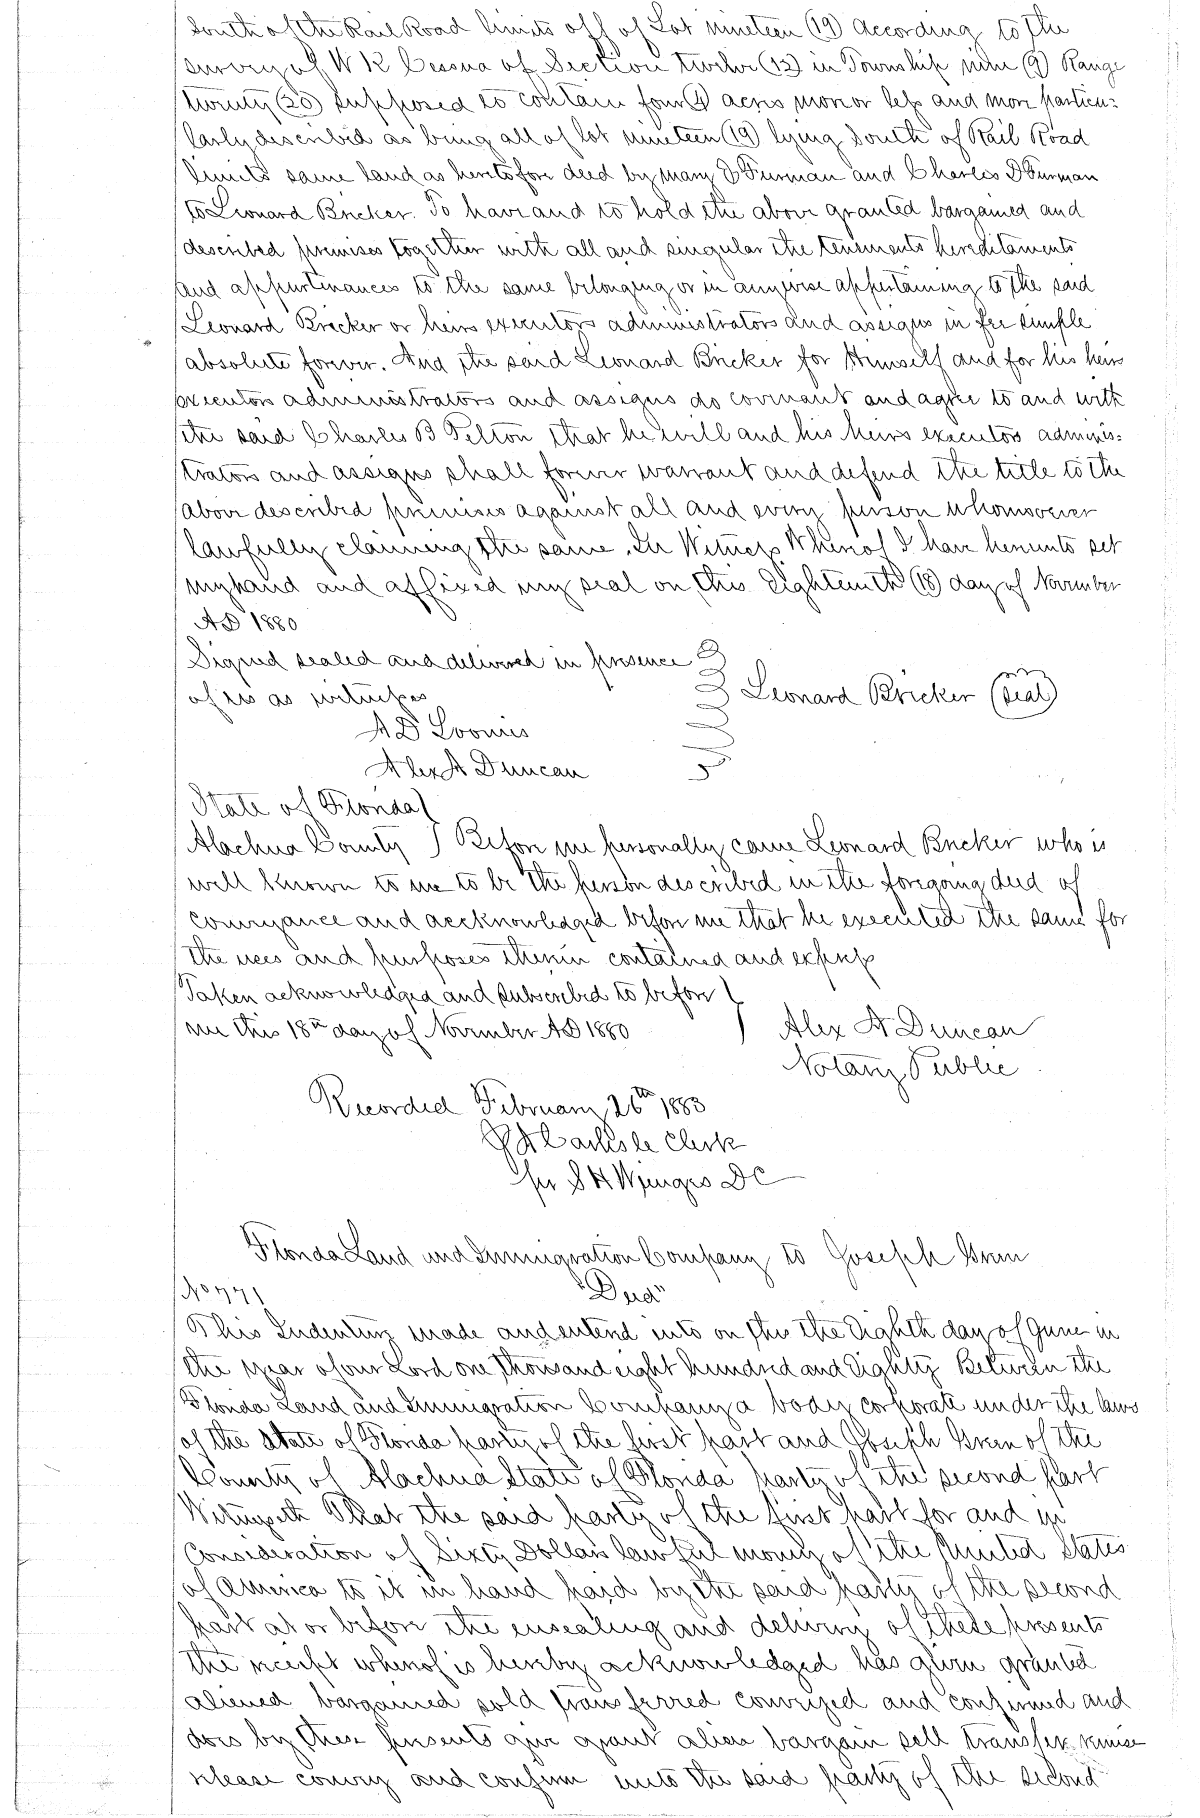 South of the Rail Road limits off of Lot nineteen (19) according to the
survey of W R Cessna of Section twelve (12) in Township nine (9) Range
twenty (20) supposed to contain four (4) acres more or less and more particu=
larly described as being all of lot nineteen (19) lying South of Rail Road
limits same land as heretofore deed by Mary E Furman and Charles D Furman
to Leonard Bricker. To have and to hold the above granted bargained and
described premises together with all and singular the tenements hereditaments
and appurtenances to the same belonging or in anywise appertaining to the said
Leonard Bricker or heirs executors administrators and assigns in fee simple
absolute forever. And the said Leonard Bricker for Himself and for his heirs
executors administrators and assigns do covenant and agree to and with
the said Charles B Pelton that he will and his heirs executors adminis=
trators and assigns shall forever warrant and defend the title to the
above described premises against all and every person whomsoever
lawfully claiming the same. In Witness Whereof I have hereunto set
my hand and affixed my seal on this Eighteenth (18) day of November
AD 1880
Signed sealed and delivered in presence
of us as witnesses
Leonard Bricker (seal)
A D Loomis
Alex A Duncan
State of Florida
Alachua County } Before me personally came Leonard Bricker who is
well known to me to be the person described in the foregoing deed of
conveyance and acknowledged before me that he executed the same for
the uses and purposes therein contained and express
Taken acknowledged and subscribed to before
me this 18th day of November AD 1880
Alex A Duncan
Notary Public
Recorded February 26th 1883
J A Carlisle Clerk
per S H Wienges DC
Florida Land and Immigration Company to Joseph Green
No 771 "Deed"
This Indenture made and entend into on this the Eighth day of June in
the year of our Lord one thousand eight hundred and Eighty Between the
Florida Land and Immigration Company a body corporate under the laws
of the State of Florida party of the first part and Joseph Green of the
County of Alachua State of Florida party of the second part
Witnesseth That the said party of the first part for and in
Consideration of Sixty Dollars lawful money of the United States
of America to it in hand paid by the said party of the second
part at or before the ensealing and delivery of these presents
the receipt whereof is hereby acknowledged has given granted
aliened bargained sold transferred conveyed and confirmed and
does by these presents give grant alien bargain sell transfer remise
release convey and confirm unto the said party of the second